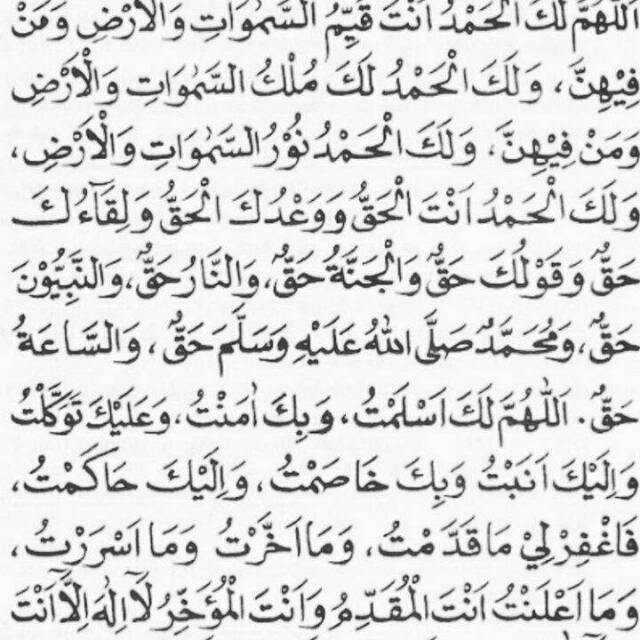 اَللّٰهُمَّ لَكَ الْحَمْدُ اَنْتَ قَيِّمُ السَّمٰوَاتِ وَالْاَرْضِ وَمَنْ
فِيْهِنَّ، وَلَكَ الْحَمْدُ لَكَ مُلْكُ السَّمٰوَاتِ وَالْاَرْضِ
وَمَنْ فِيْهِنَّ، وَلَكَ الْحَمْدُ نُوْرُ السَّمٰوَاتِ وَالْاَرْضِ،
وَلَكَ الْحَمْدُ اَنْتَ الْحَقُّ وَوَعْدُكَ الْحَقُّ وَلِقَآءُكَ
حَقٌّ وَقَوْلُكَ حَقٌّ وَالْجَنَّةُ حَقٌّ، وَالنَّارُ حَقٌّ، وَالنَّبِيُّوْنَ
حَقٌّ، وَمُحَمَّدٌ صَلَّى اللهُ عَلَيْهِ وَسَلَّمَ حَقٌّ، وَالسَّاعَةُ
حَقٌّ. اَللّٰهُمَّ لَكَ اَسْلَمْتُ، وَبِكَ اٰمَنْتُ، وَعَلَيْكَ تَوَكَّلْتُ
وَاِلَيْكَ اَنَبْتُ وَبِكَ خَاصَمْتُ، وَاِلَيْكَ حَاكَمْتُ،
فَاغْفِرْلِيْ مَا قَدَّمْتُ، وَمَا اَخَّرْتُ وَمَا اَسْرَرْتُ،
وَمَا اَعْلَنْتُ اَنْتَ الْمُقَدِّمُ وَاَنْتَ الْمُؤَخِّرُ لَآاِلٰهَ اِلَّآ اَنْتَ